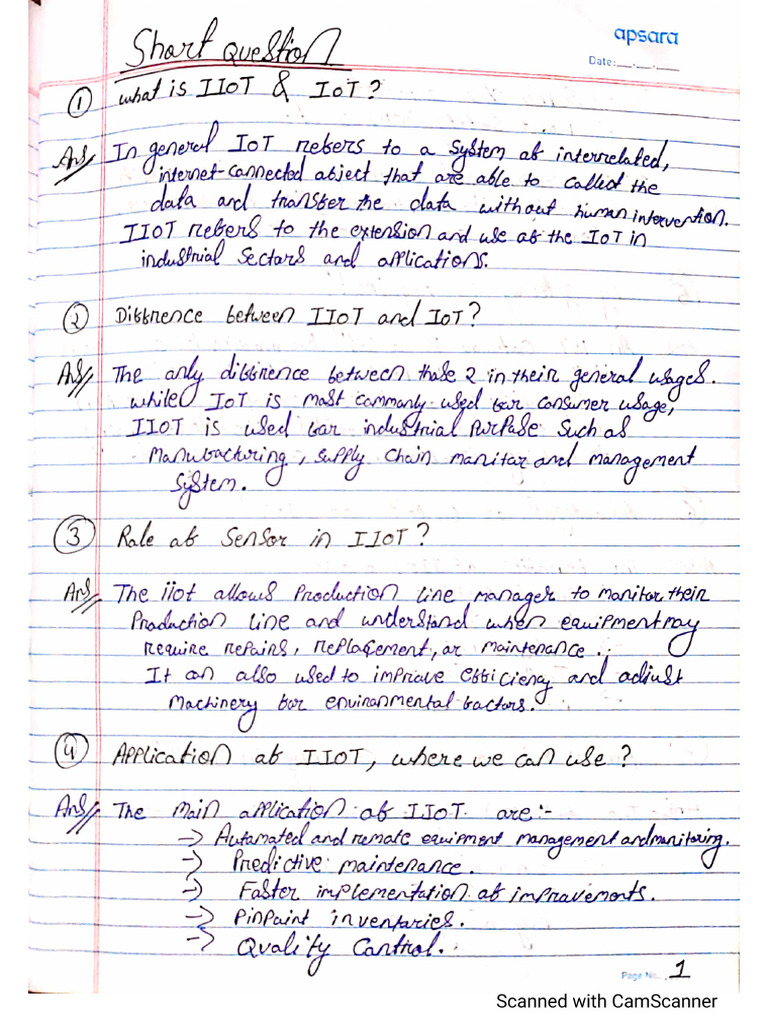 Short question
apsara
Date:__.__.__
① what is IIoT & IoT?
Ans In general IoT refers to a system of interrelated,
internet-connected object that are able to called the
data and transfer the data without human intervention.
IIOT refers to the extension and use of the IoT in
industrial sectors and applications.
② Diffrence between IIOT and IoT?
Ans The only diffrience between those 2 in their general usages.
while IoT is most commonly used for consumer usage,
IIOT is used for industrial purpose such as
Manufacturing, supply chain monitor and management
system.
③ Role of sensor in IIOT?
Ans The iiot allows production line manager to monitor their
production line and understand when equipment may
require repairs, replacement, or maintenance.
It can also used to improve efficiency and adjust
Machinery for environmental factors.
④ Application of IIOT, where we can use?
Ans The main application of IIOT are:-
-> Automated and remote equipment management and monitoring.
-> Predictive maintenance.
-> Faster implementation of improvements.
-> Pinpoint inventories.
-> Quality Control.
Page No. 1
Scanned with CamScanner